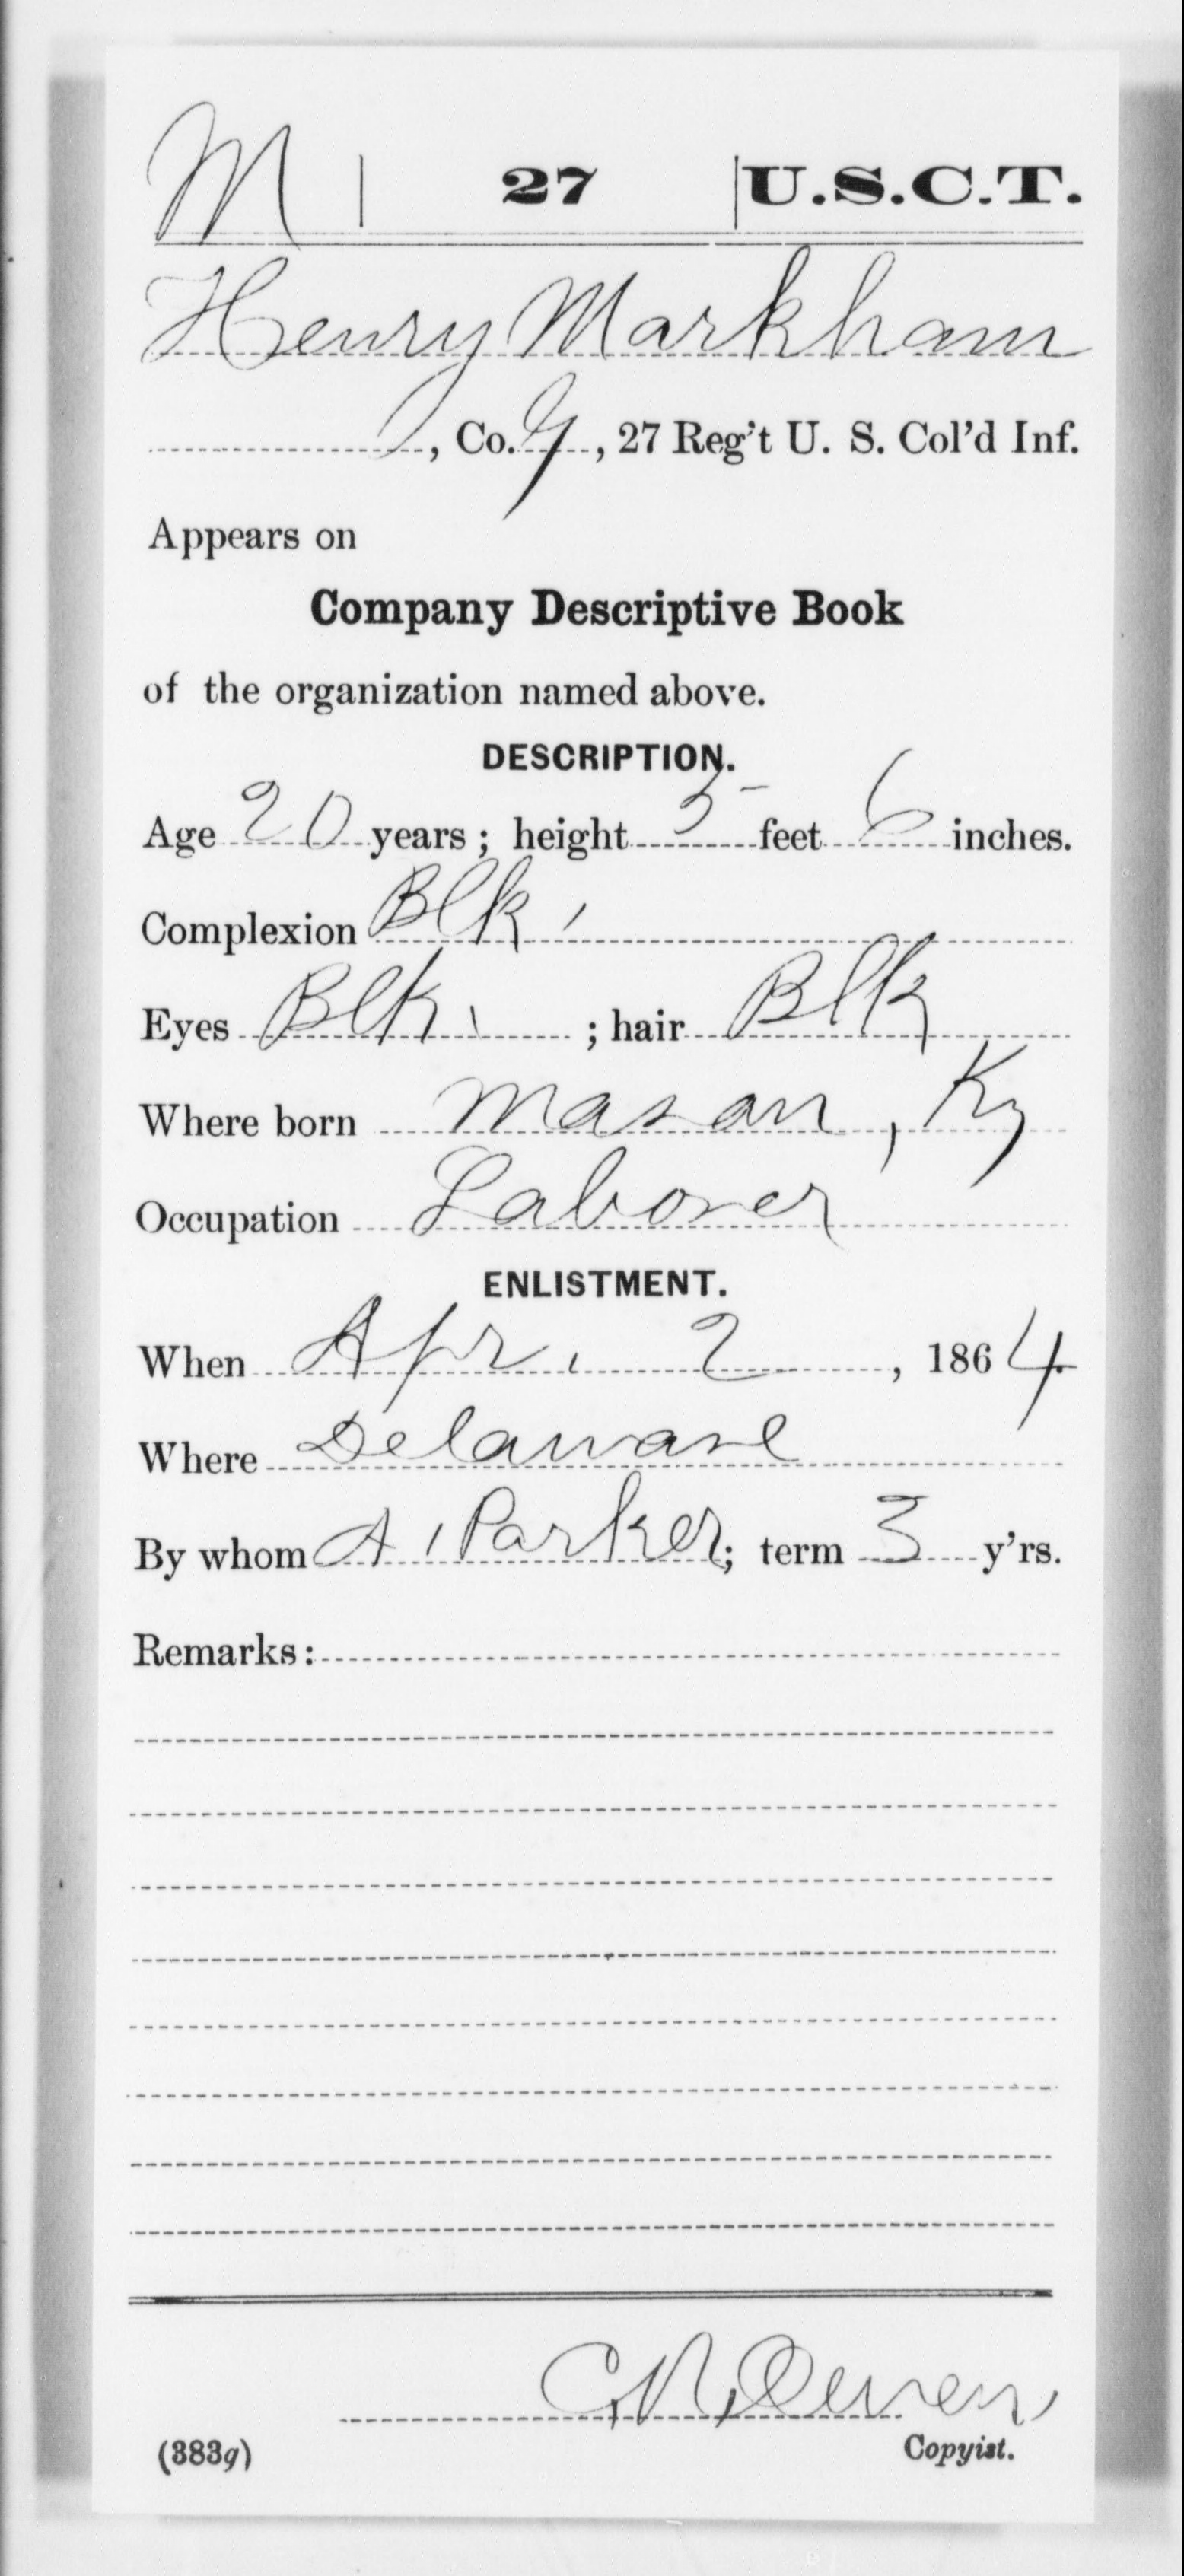 M | 27 | U.S.C.T.
Henry Markham
, Co. G, 27 Reg't U. S. Col'd Inf.
Appears on
Company Descriptive Book
of the organization named above.
DESCRIPTION.
Age 20 years; height 5 feet 6 inches.
Complexion Blk.
Eyes Blk. ; hair Blk
Where born Mason, Ky
Occupation Laborer
ENLISTMENT.
When Apr. 2, 1864
Where Delaware
By whom A. Parker; term 3 y'rs.
Remarks:
Owen,
(383g) Copyist.